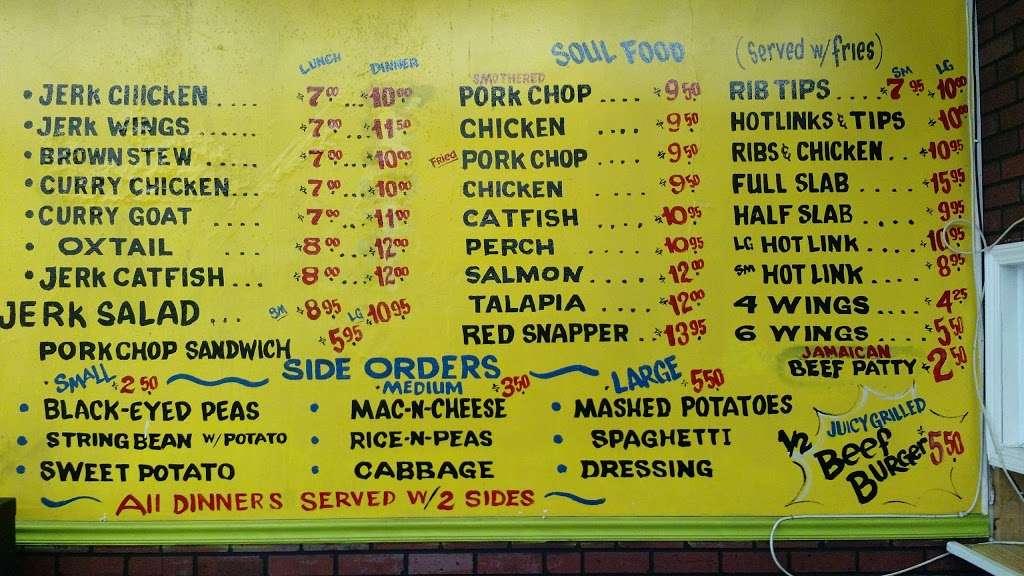 LUNCH DINNER
• JERK CHICKEN .... $7.00 ... $10.00
• JERK WINGS ...... $7.00 ... $11.50
• BROWN STEW ...... $7.00 ... $10.00
• CURRY CHICKEN... $7.00 ... $10.00
• CURRY GOAT .... $7.00 ... $11.00
• OXTAIL .... $8.00 ... $12.00
• JERK CATFISH ... $8.00 ... $12.00
JERK SALAD ... SM $8.95 LG $10.95
PORKCHOP SANDWICH $5.95
SOUL FOOD
SMOTHERED
PORK CHOP .... $9.50
CHICKEN .... $9.50
Fried PORK CHOP .... $9.50
CHICKEN ..... $9.50
CATFISH .... $10.95
PERCH .... $10.95
SALMON .... $12.00
TALAPIA .... $12.00
RED SNAPPER .. $13.95
(Served w/fries)
SM LG
RIB TIPS .... $7.95 $10.00
HOTLINKS & TIPS $10.00
RIBS & CHICKEN .. $10.95
FULL SLAB .... $15.95
HALF SLAB .... $9.95
LG HOT LINK .... $10.95
SM HOT LINK .... $8.95
4 WINGS .... $4.25
6 WINGS .... $5.50
JAMAICAN
BEEF PATTY $2.50
SIDE ORDERS
• SMALL $2.50 • MEDIUM $3.50 • LARGE $5.50
• BLACK-EYED PEAS • MAC-N-CHEESE • MASHED POTATOES
• STRING BEAN W/POTATO • RICE-N-PEAS • SPAGHETTI
• SWEET POTATO • CABBAGE • DRESSING
All DINNERS SERVED W/2 SIDES
JUICY GRILLED
1/2 Beef
BURGER $5.50